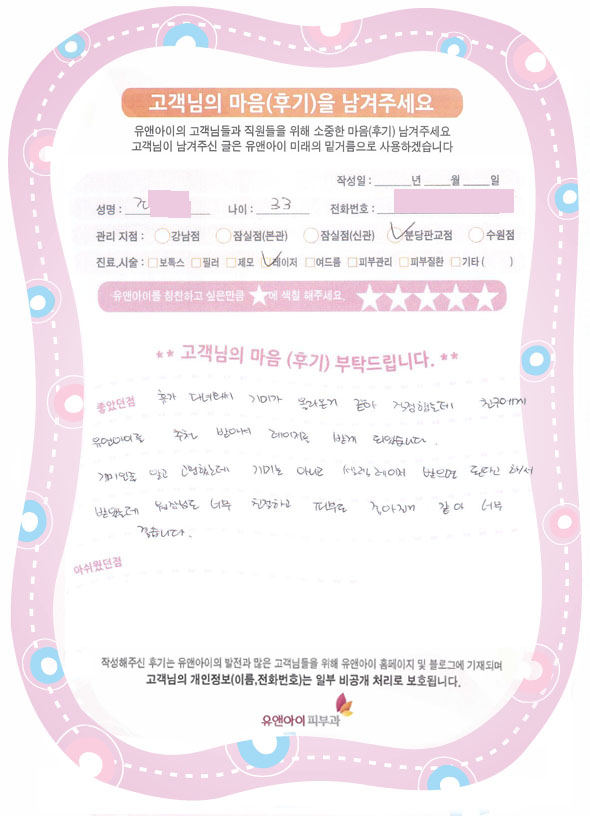 고객님의 마음(후기)을 남겨주세요
유앤아이의 고객님들과 직원들을 위해 소중한 마음(후기) 남겨주세요
고객님이 남겨주신 글은 유앤아이 미래의 밑거름으로 사용하겠습니다
작성일 : 년 월 일
성명 : 나이 : 33 전화번호 :
관리 지점 : 강남점 잠실점(본관) 잠실점(신관) 분당판교점 수원점
진료,시술 : 보톡스 필러 제모 레이저 여드름 피부관리 피부질환 기타 ( )
유앤아이를 칭찬하고 싶은만큼 ★에 색칠 해주세요. ★★★★★
** 고객님의 마음 (후기) 부탁드립니다. **
좋았던점 휴가 다녀와서 기미가 올라온거 같아 걱정했는데 친구에게
유앤아이를 추천 받아서 레이저를 받게 되었습니다.
고민했는데 기미는 아니고 레이저 받으면 된다고 해서
받았는데 원장님도 너무 친절하고 피부도 좋아진거 같아 너무
좋습니다.
아쉬웠던점
작성해주신 후기는 유앤아이의 발전과 많은 고객님들을 위해 유앤아이 홈페이지 및 블로그에 기재되며
고객님의 개인정보(이름,전화번호)는 일부 비공개 처리로 보호됩니다.
유앤아이피부과